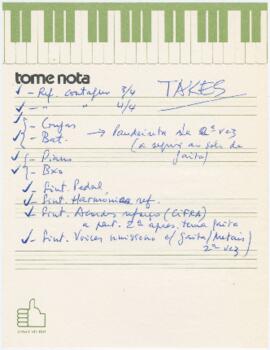 tome nota
TAKES
✓ - Ref. contagem 3/4
✓ - " " 4/4
- Congas
✓ - Bat. → Pandeireta na 2ª vez
(a seguir ao solo de
gaita)
✓ - Piano
- Bxo
✓ - Sint. Pedal
✓ - Sint. Harmónica ref.
✓ - Sint. Acordes reforço (CIFRA)
a part. 2ª apres. tema gaita
✓ - Sint. Voices uníssono c/ (gaita/Metais)
2ª vez)